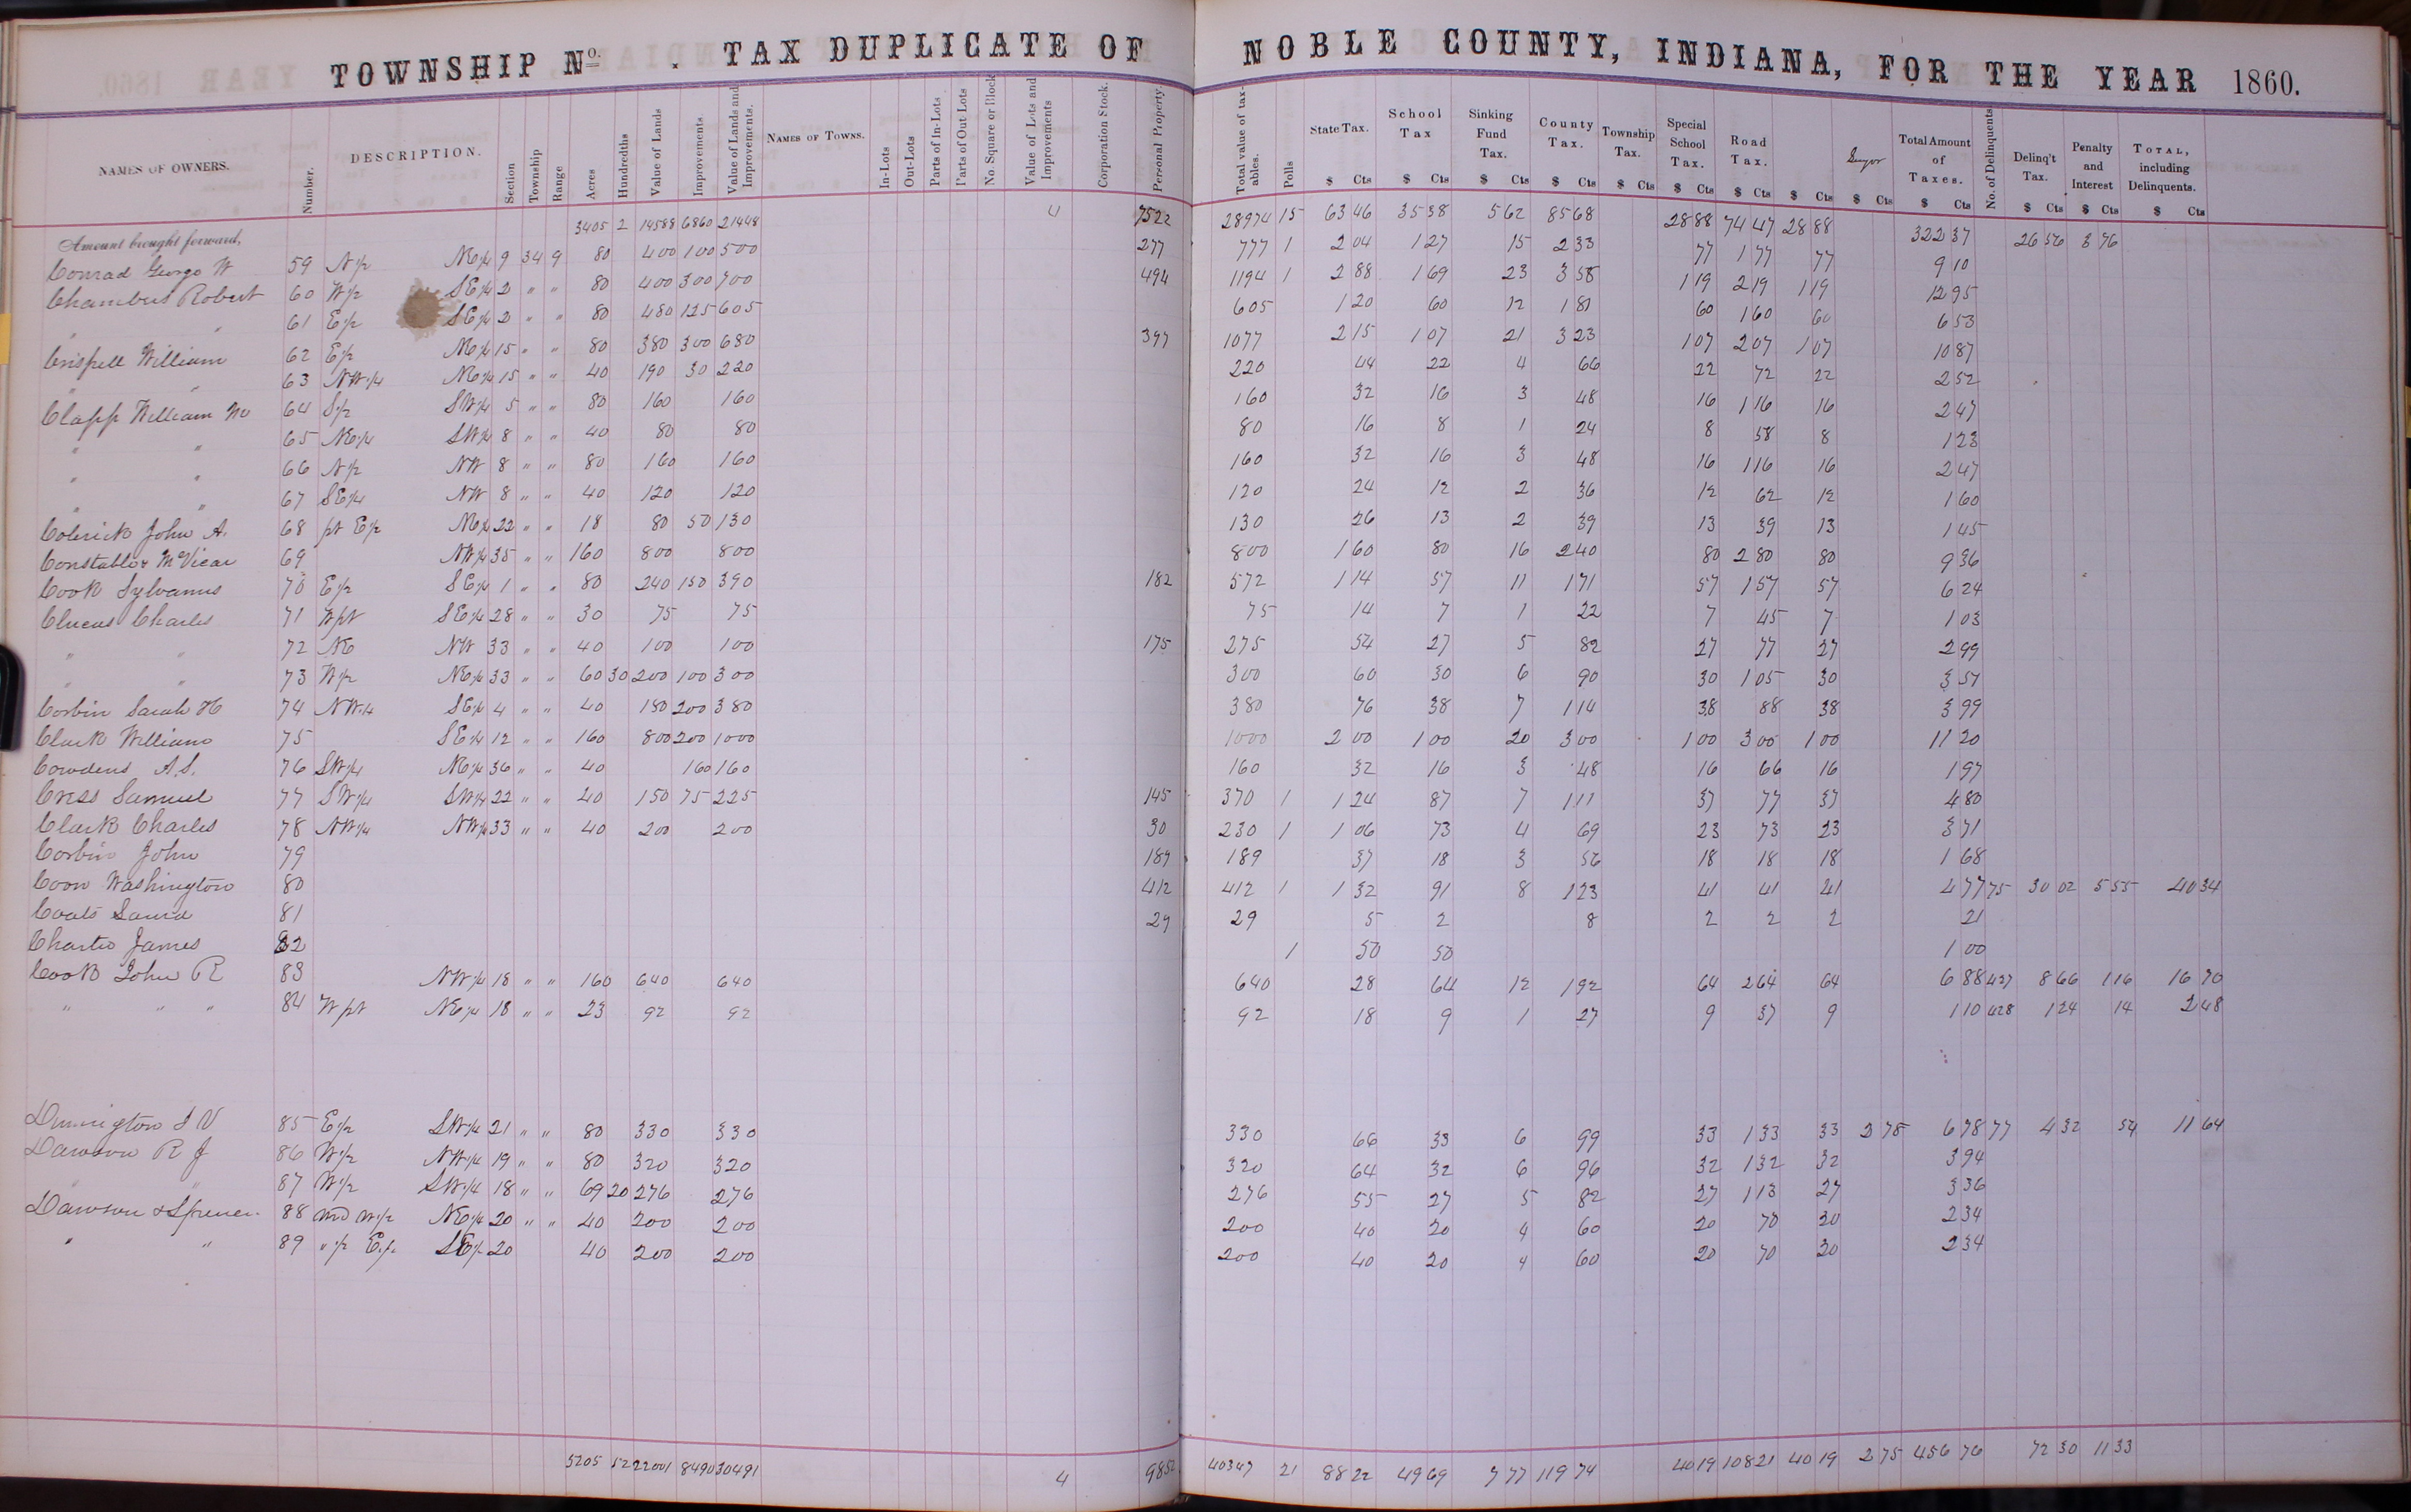 TOWNSHIP No. . TAX DUPLICATE OF NOBLE COUNTY, INDIANA, FOR THE YEAR 1860.
NAMES OF OWNERS. Number. DESCRIPTION. Section Township Range Acres Hundredths Value of Lands Improvements. Value of Lands and Improvements. NAMES OF TOWNS. In-Lots Out-Lots Parts of In-Lots Parts of Out Lots No. Square or Block Value of Lots and Improvements Corporation Stock. Personal Property. Total value of taxables. Polls State Tax. School Tax Sinking Fund Tax. County Tax. Township Tax. Special School Tax. Road Tax. Total Amount of Taxes. No. of Delinquents Delinq't Tax. Penalty and Interest TOTAL, including Delinquents.
$ Cts $ Cts $ Cts $ Cts $ Cts $ Cts $ Cts $ Cts $ Cts $ Cts $ Cts $ Cts $ Cts
Amount brought forward, 3405 2 14588 6860 21448 4 7522 28974 15 63 46 35 38 5 62 85 68 28 88 74 47 28 88 322 37 26 56 3 76
Conrad George W 59 N 1/2 NE 1/4 9 34 9 80 400 100 500 277 777 1 2 04 1 27 15 2 33 77 1 77 77 9 10
Chambers Robert 60 W 1/2 SE 1/4 2 " " 80 400 300 700 494 1194 1 2 88 1 69 23 3 58 1 19 2 19 1 19 12 95
" " 61 E 1/2 SE 1/4 2 " " 80 480 125 605 605 1 20 60 12 1 81 60 1 60 60 6 53
Crispell William 62 E 1/2 NE 1/4 15 " " 80 380 300 680 397 1077 2 15 1 07 21 3 23 1 07 2 07 1 07 10 87
" " 63 NW 1/4 NE 1/4 15 " " 40 190 30 220 220 44 22 4 66 22 72 22 2 52
Clapp William W 64 S 1/2 SW 1/4 5 " " 80 160 160 160 32 16 3 48 16 1 16 16 2 47
" " 65 NE 1/4 SW 1/4 8 " " 40 80 80 80 16 8 1 24 8 58 8 1 23
" " 66 N 1/2 NW 8 " " 80 160 160 160 32 16 3 48 16 1 16 16 2 47
" " 67 SE 1/4 NW 8 " " 40 120 120 120 24 12 2 36 12 62 12 1 60
Colerick John A. 68 pt E 1/2 NE 1/4 22 " " 18 80 50 130 130 26 13 2 39 13 39 13 1 45
Constable & McVicar 69 NW 1/4 35 " " 160 800 800 800 1 60 80 16 2 40 80 2 80 80 9 36
Cook Sylvanus 70 E 1/2 SE 1/4 1 " " 80 240 150 390 182 572 1 14 57 11 1 71 57 1 57 57 6 24
Clucas Charles 71 W pt SE 1/4 28 " " 30 75 75 75 14 7 1 22 7 45 7 1 03
" " 72 NE NW 33 " " 40 100 100 175 275 54 27 5 82 27 77 27 2 99
" " 73 W 1/2 NE 1/4 33 " " 60 30 200 100 300 300 60 30 6 90 30 1 05 30 3 51
Corbin Sarah H 74 NW 1/4 SE 1/4 4 " " 40 180 200 380 380 76 38 7 1 14 38 88 38 3 99
Clark William 75 SE 1/4 12 " " 160 800 200 1000 1000 2 00 1 00 20 3 00 1 00 3 00 1 00 11 20
Cowdens A.S. 76 SW 1/4 NE 1/4 36 " " 40 160 160 160 32 16 3 48 16 66 16 1 97
Cress Samuel 77 SW 1/4 SW 1/4 22 " " 40 150 75 225 145 370 1 1 24 87 7 1 11 37 77 37 4 80
Clark Charles 78 NW 1/4 NW 1/4 33 " " 40 200 200 30 230 1 1 06 73 4 69 23 73 23 3 71
Corbin John 79 189 189 37 18 3 56 18 18 18 1 68
Coon Washington 80 412 412 1 1 32 91 8 1 23 41 41 41 4 77 75 30 02 5 55 40 34
Coats 81 29 29 5 2 8 2 2 2 21
James 82 1 50 50 1 00
Cook John R 83 NW 1/4 18 " " 160 640 640 640 28 64 12 1 92 64 2 64 64 6 88 427 8 66 1 16 16 70
" " " 84 W pt NE 1/4 18 " " 23 92 92 92 18 9 1 27 9 37 9 1 10 428 1 24 14 2 48
85 E 1/2 SW 1/4 21 " " 80 330 330 330 66 33 6 99 33 1 33 33 2 75 6 78 77 4 32 54 11 64
Dawson R J 86 W 1/2 NW 1/4 19 " " 80 320 320 320 64 32 6 96 32 1 32 32 3 94
" " 87 W 1/2 SW 1/4 18 " " 69 20 276 276 276 55 27 5 82 27 1 13 27 3 36
Dawson & Spencer 88 und W 1/2 NE 1/4 20 " " 40 200 200 200 40 20 4 60 20 70 20 2 34
" " 89 " 1/2 E 1/2 SE 1/4 20 40 200 200 200 40 20 4 60 20 70 20 2 34
5205 52 22001 8490 30491 4 9852 40347 21 88 22 49 69 7 77 119 74 40 19 108 21 40 19 2 75 456 76 72 30 11 33